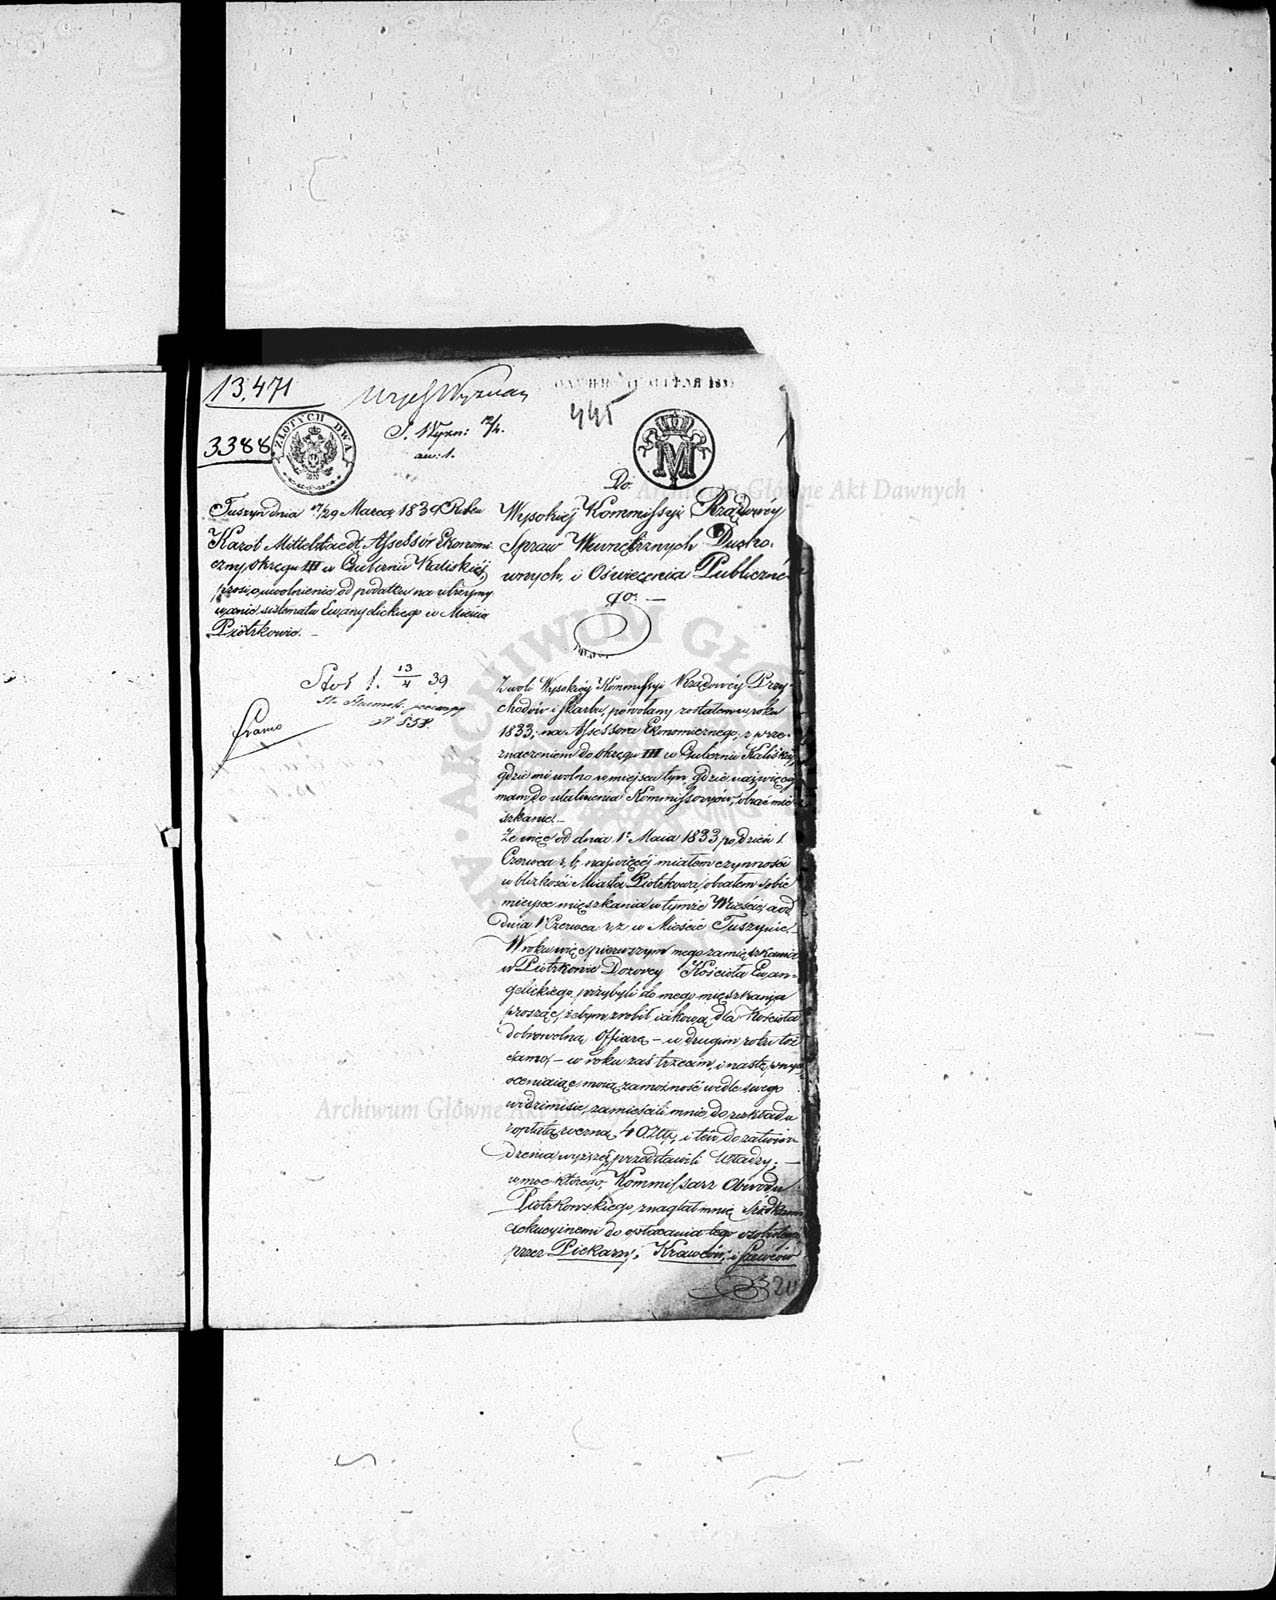 13,471
3388
ZŁOTYCH DWA
S. Wyzn:
445
M
Do.
Tuszyn dnia 17/29 Marca 1839 Roku
Karól Mittelstaedt, Assessór Ekonomi-
czny okręgu III w Gubernii Kaliskiéj,
prosi o uwolnienie od podatku na utrzymy
wanie sistematu Ewanyelickiego w Mieście
Piotrkowie. –
Stoł 1. 13/4 39
Wysokiéj Kommissyi Rządowéy
Spraw Wewnętrznych Ducho-
wnych, i Oświecenia Publiczne
go. –
Z woli Wysokiéy Kommissyi Rządowéy Przy-
chodów i Skarbu, powołany zostałem w roku
1833, na Assessora Ekonomicznego, z prze-
znaczeniem do okręgu III w Gubernii Kaliskiéj,
gdzie mi wolno w miejscu tym gdzie najwięcéj
mam do ułatwienia Kommissoryów, obrać mie
szkanie. –
Że więc od dnia 1º Maia 1833 po dzień 1
Czerwca r. b. najwięcéj miałem czynności
w blizkości Miasta Piotrkowa, obrałem sobie
miejsce mięszkania w tymże Mieście, a od
dnia 1 Czerwca r. z. w Mieście Tuszynie. –
W roku więc pierwszym mego zamięszkania
w Piotrkowie Dozorcy Kościoła Ewan-
gelickiego przybyli do mego mięszkania
prosząc, żebym zrobił iakową dla Kościoła
dobrowolną Offiarę – w drugim roku toż
samo, – w roku zaś trzecim i następnym
oceniaiąc moią zamożność wedle swego
widzimisie, zamieścili mnie do rozkładu
z opłatą roczną 40 Złtp, i ten do zatwier-
dzenia wyższéj przedstawili Władzy; –
w moc którego Kommissarz Obwodu
Piotrkowskiego, znaglał mnie środkami
exekucyinemi do opłacania tego
przez Piekarzy, Krawców, i Szewców
320
Archiwum Główne Akt Dawnych
Archiwum Główne Akt Dawnych